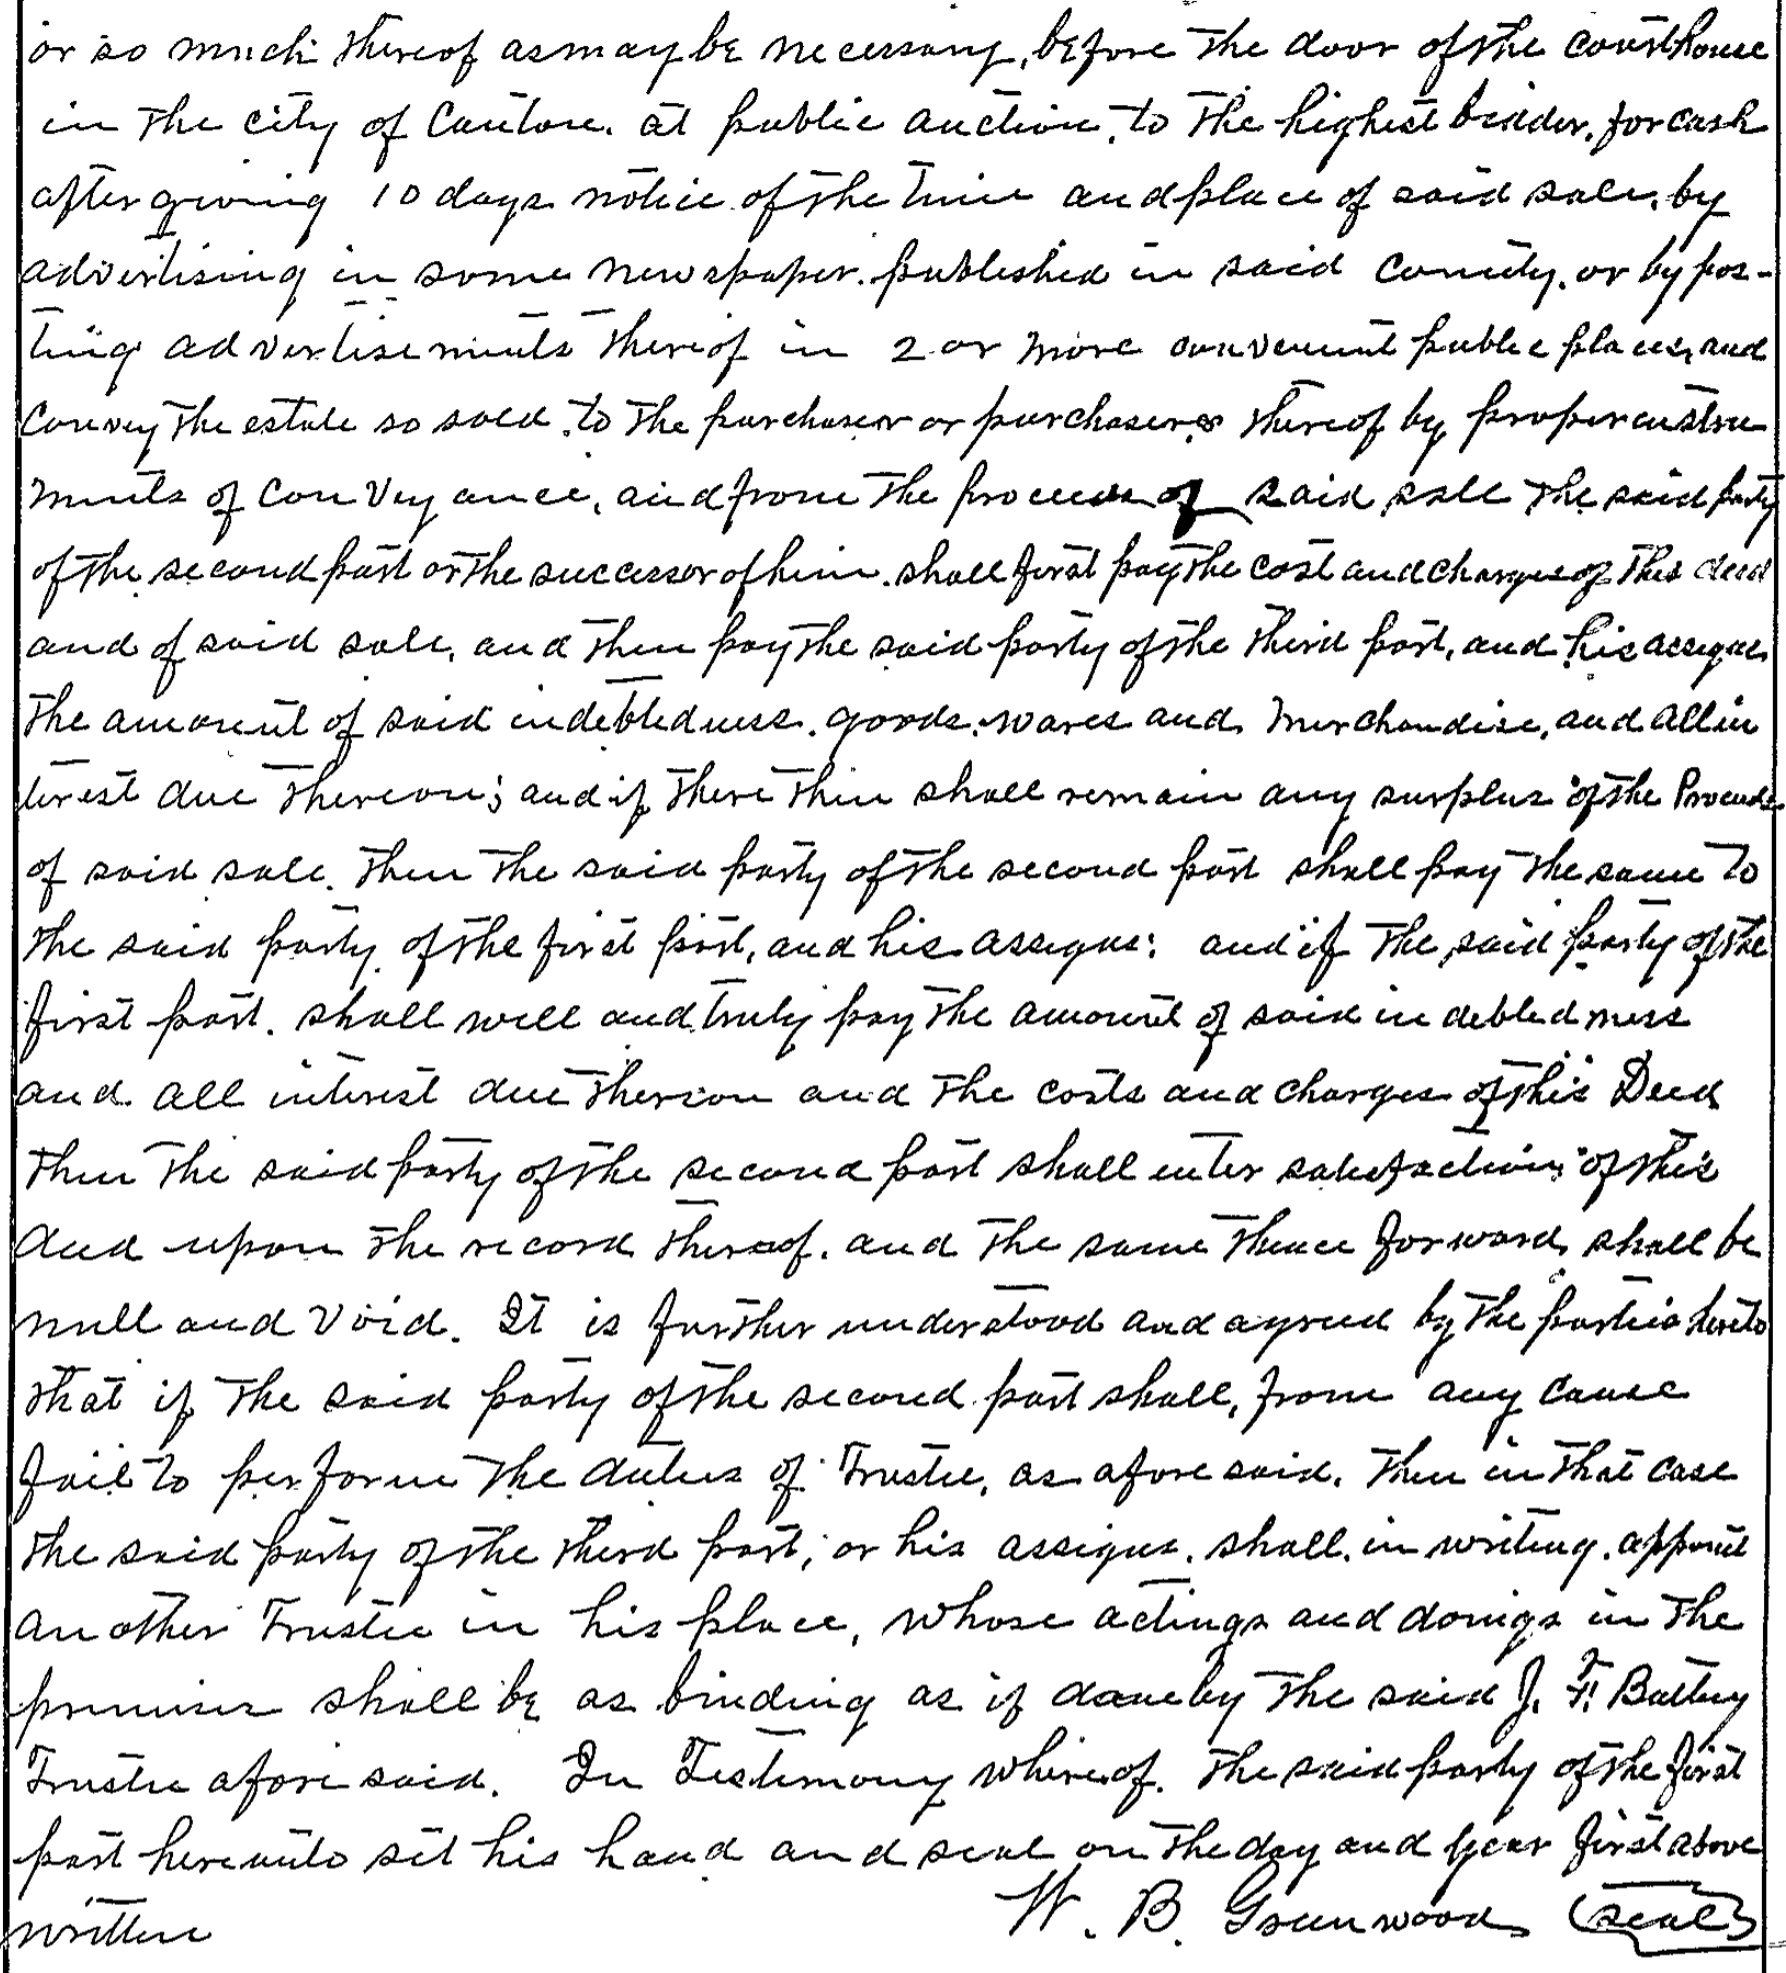 or so much thereof as may be necessary, before the door of the courthouse
in the city of Canton, at public auction, to the highest bidder, for cash
after giving 10 days notice of the time and place of said sale, by
advertising in some newspaper published in said County, or by pos-
ting advertisements thereof in 2 or more convenient public places, and
convey the estate so sold, to the purchaser or purchasers thereof by proper instru
ments of conveyance, and from the proceeds of said sale the said party
of the second part or the successor of him, shall first pay the cost and charges of this deed
and of said sale, and then pay the said party of the third part, and his assigns
the amount of said indebtedness, goods, wares and merchandise, and all in
terest due thereon; and if there then shall remain any surplus of the Proceeds
of said sale, then the said party of the second part shall pay the same to
the said party of the first part, and his assigns; and if the said party of the
first part, shall well and truly pay the amount of said indebtedness
and all interest due thereon and the costs and charges of this Deed
then the said party of the second part shall enter satisfaction of this
deed upon the record thereof, and the same thence forward shall be
null and void. It is further understood and agreed by the parties hereto
that if the said party of the second part shall, from any cause
fail to perform the duties of Trustee, as aforesaid, then in that case
the said party of the third part, or his assigns, shall, in writing, appoint
another Trustee in his place, whose actings and doings in the
premises shall be as binding as if done by the said J. F. Battley
Trustee aforesaid. In Testimony whereof, the said party of the first
part hereunto set his hand and seal on the day and year first above
written W. B. Greenwood (seal)